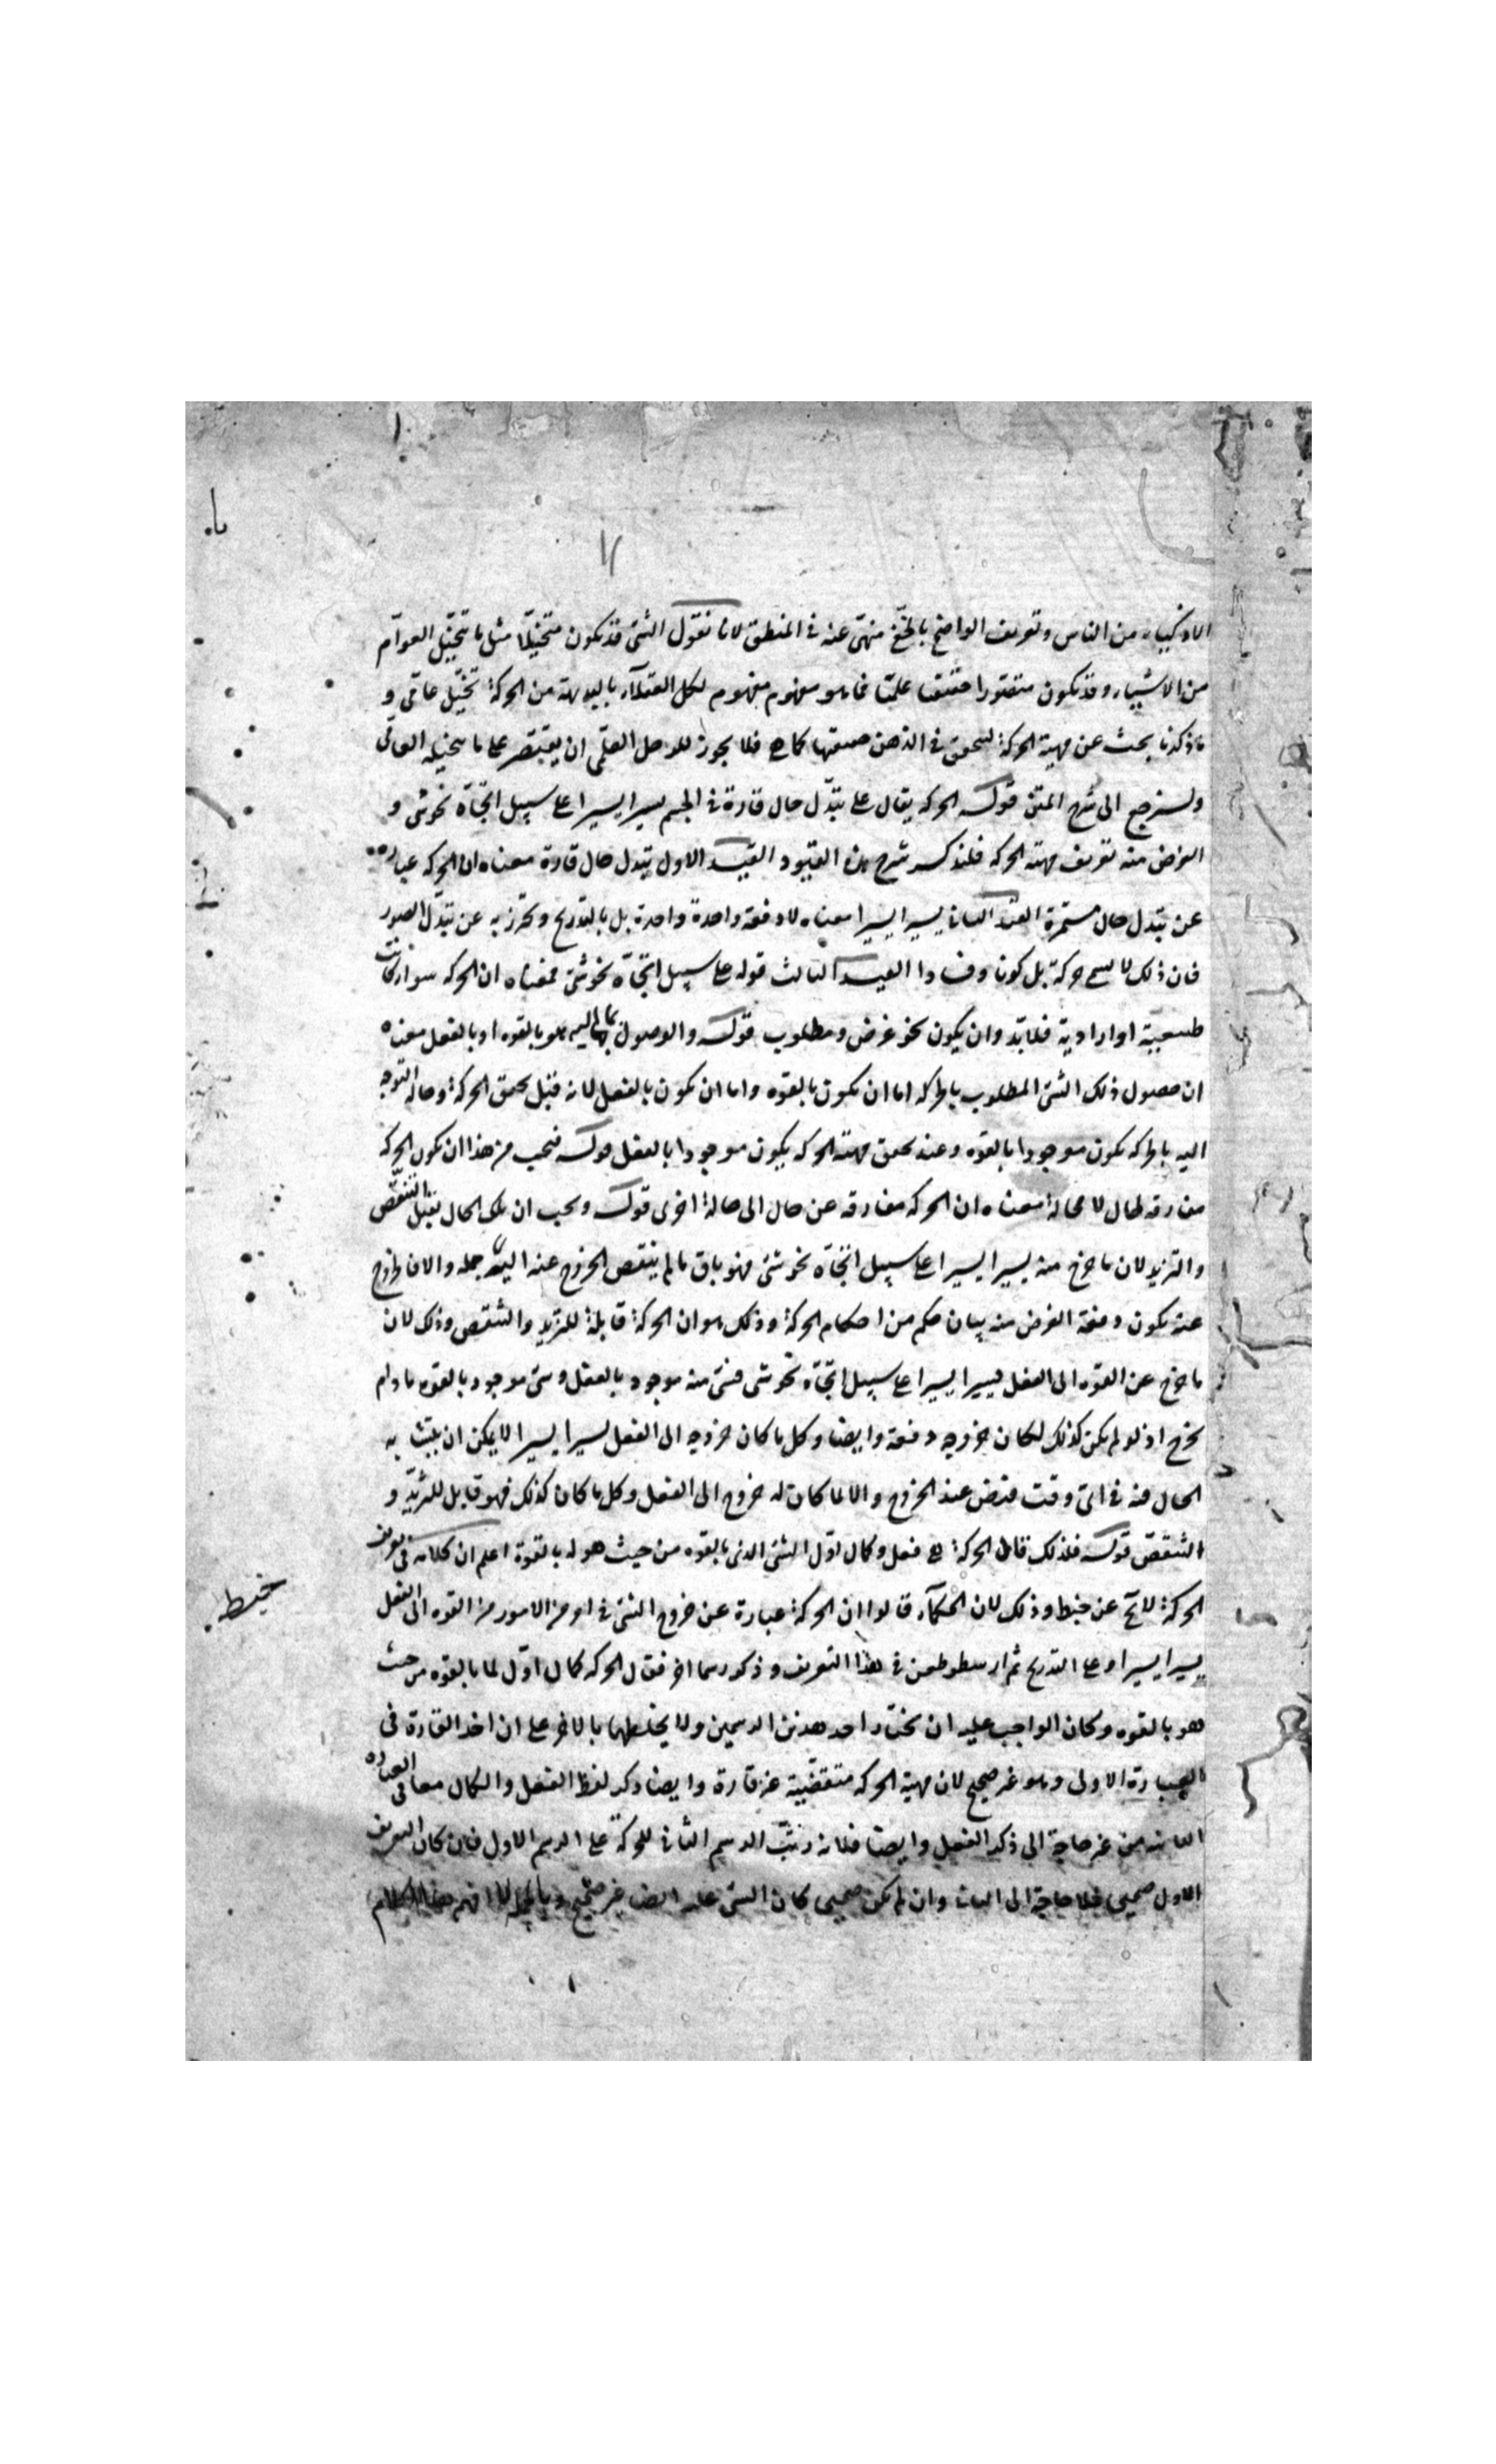 الاذكياء من الناس وتعريف الواضح بالخفي منهي عنه في المنطق لانا نقول الشئ قد يكون متخيلا مثل ما تخيل العوام
من الاشياء وقد يكون متصورا علميا فما هو مفهوم لكل العقلاء بالبديهة من الحركة تخيل عامي و
ما ذكرنا بحث عن مهية الحركة لتحقق في الذهن كما هي فلا يجوز للعلمي ان يقتصر على ما يتخيله العامي
ولنرجع الى شرح المتن قوله الحركة يقال على تبدل حال قارة في الجسم يسيرا يسيرا على سبيل اتجاه نحو شئ و
الغرض منه تعريف مهية الحركة فلنذكر شرح هذه القيود القيد الاول تبدل حال قارة معناه ان الحركة عبارة
عن تبدل حال مستمرة القيد الثاني يسيرا يسيرا معناه لا دفعة واحدة بل بالتدريج ويحترز به عن تبدل الصور
فان ذلك لا يسمى حركة بل كونا وفسادا القيد الثالث قوله على سبيل اتجاه نحو شئ فمعناه ان الحركة سواء كانت
طبيعية او ارادية فلا بد وان يكون نحو غرض ومطلوب قوله والوصول بها اليه هو بالقوه او بالفعل معناه
ان حصول ذلك الشئ المطلوب بالحركه اما ان يكون بالقوه واما ان يكون بالفعل لانه قبل تحقق الحركة وحالة التوجه
اليه بالحركه يكون موجودا بالقوه وعند تحقق مهية الحركه يكون موجودا بالفعل قوله فيجب من هذا ان يكون الحركه
مفارقه لحال لا محالة معناه ان الحركه مفارقه عن حال الى حالة اخرى قوله ويجب ان يكون تلك الحال يقبل التنقص
والتزيد لان ما خرج منه يسيرا يسيرا على سبيل اتجاه نحو شئ فهو باق ما لم ينقص الخروج عنه البتة جمله والا فالخروج
عنه يكون دفعة الغرض منه بيان حكم من احكام الحركة وذلك هو ان الحركة قابلة للتزيد والتنقص وذلك لان
ما خرج عن القوه الى الفعل يسيرا يسيرا على سبيل اتجاه نحو شئ فشئ منه موجود بالفعل وشئ موجود بالقوه ما دام
يخرج اذ لو لم يكن كذلك لكان خروجه دفعة وايضا وكل ما كان خروجه الى الفعل يسيرا يسيرا لا يمكن ان يتشابه
الحال منه في اي وقت فرض عند الخروج والا لما كان له خروج الى الفعل وكل ما كان كذلك فهو قابل للتزيد و
التنقص قوله فلذلك قابل الحركة هي فعل وكمال اول الشئ الذي بالقوه من حيث هو له بالقوة اعلم ان كلامه في تعريف
الحركة لا يخ عن خبط وذلك لان الحكماء قالوا ان الحركة عبارة عن خروج الشئ في امر من الامور من القوه الى الفعل
يسيرا يسيرا او على التدريج ثم ارسطو طعن في هذا التعريف وذكر رسما اخر فقال الحركه كمال اول لما بالقوه من حيث
هو بالقوه وكان الواجب عليه ان يختار احد هذين الرسمين ولا يخلطهما بالاخر على ان اخذ القارة في
العبارة الاولى وهو غير صحيح لان مهية الحركه متقضية غير قارة وايضا ذكر لفظ الفعل والكمال معا في العبارة
الثانيه من غير حاجة الى ذكر الفعل وايضا فلانه رتب الرسم الثاني للحركة على الرسم الاول فان كان التعريف
الاول صحيحا فلا حاجة الى الثاني وان لم يكن صحيحا كان المبني عليه ايضا غير صحيح وبالجملة لا افهم هذا الكلام
خبط